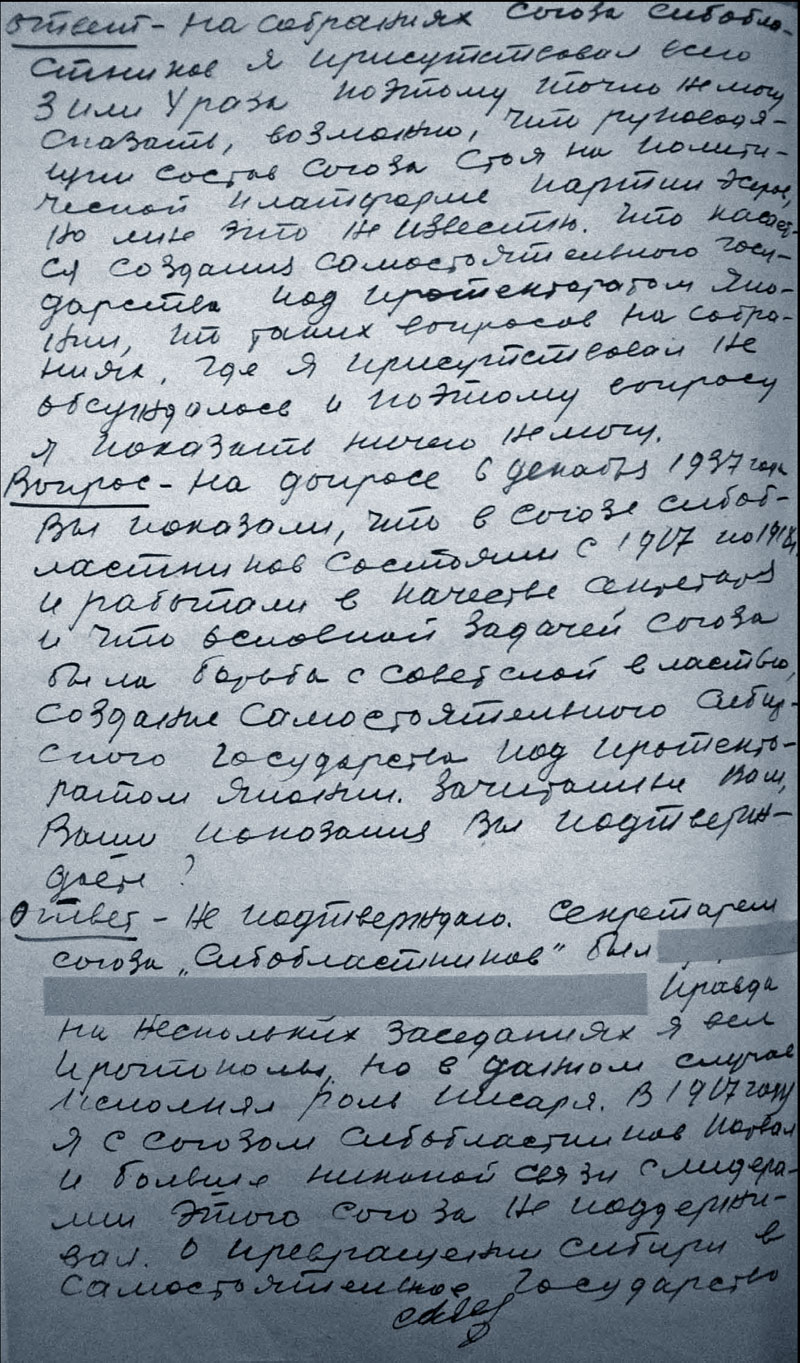 Ответ - на собраниях Союза сибобла-
стников я присутствовал всего
3 или 4 раза поэтому точно не могу
сказать, возможно, что руководя-
щий состав Союза стоя на полити-
ческой платформе партии эсеров,
но мне это не известно. Что касает-
ся создания самостоятельного госу-
дарства под протекторатом Япо-
нии, то таких вопросов на собра-
ниях, где я присутствовал не
обсуждалось и поэтому вопросу
я показать ничего не могу.
Вопрос - на допросе 6 декабря 1937 года
Вы показали, что в союзе сибоб-
ластников состояли с 1917 по 1918
и работали в качестве секретаря
и что основной задачей союза
была борьба с советской властью,
создание самостоятельного Сибир-
ского государства под протекто-
ратом Японии. Зачитанные Вам,
Ваши показания Вы подтверж-
даете?
Ответ - не подтверждаю. Секретарем
союза „Сибобластников" был
Правда
на нескольких заседаниях я вел
протоколы, но в данном случае
исполнял роль писаря. В 1917 году
я с союзом сибобластников порвал
и больше никакой связи с лидера-
ми этого союза не поддержи-
вал. О превращении Сибири в
самостоятельное государство